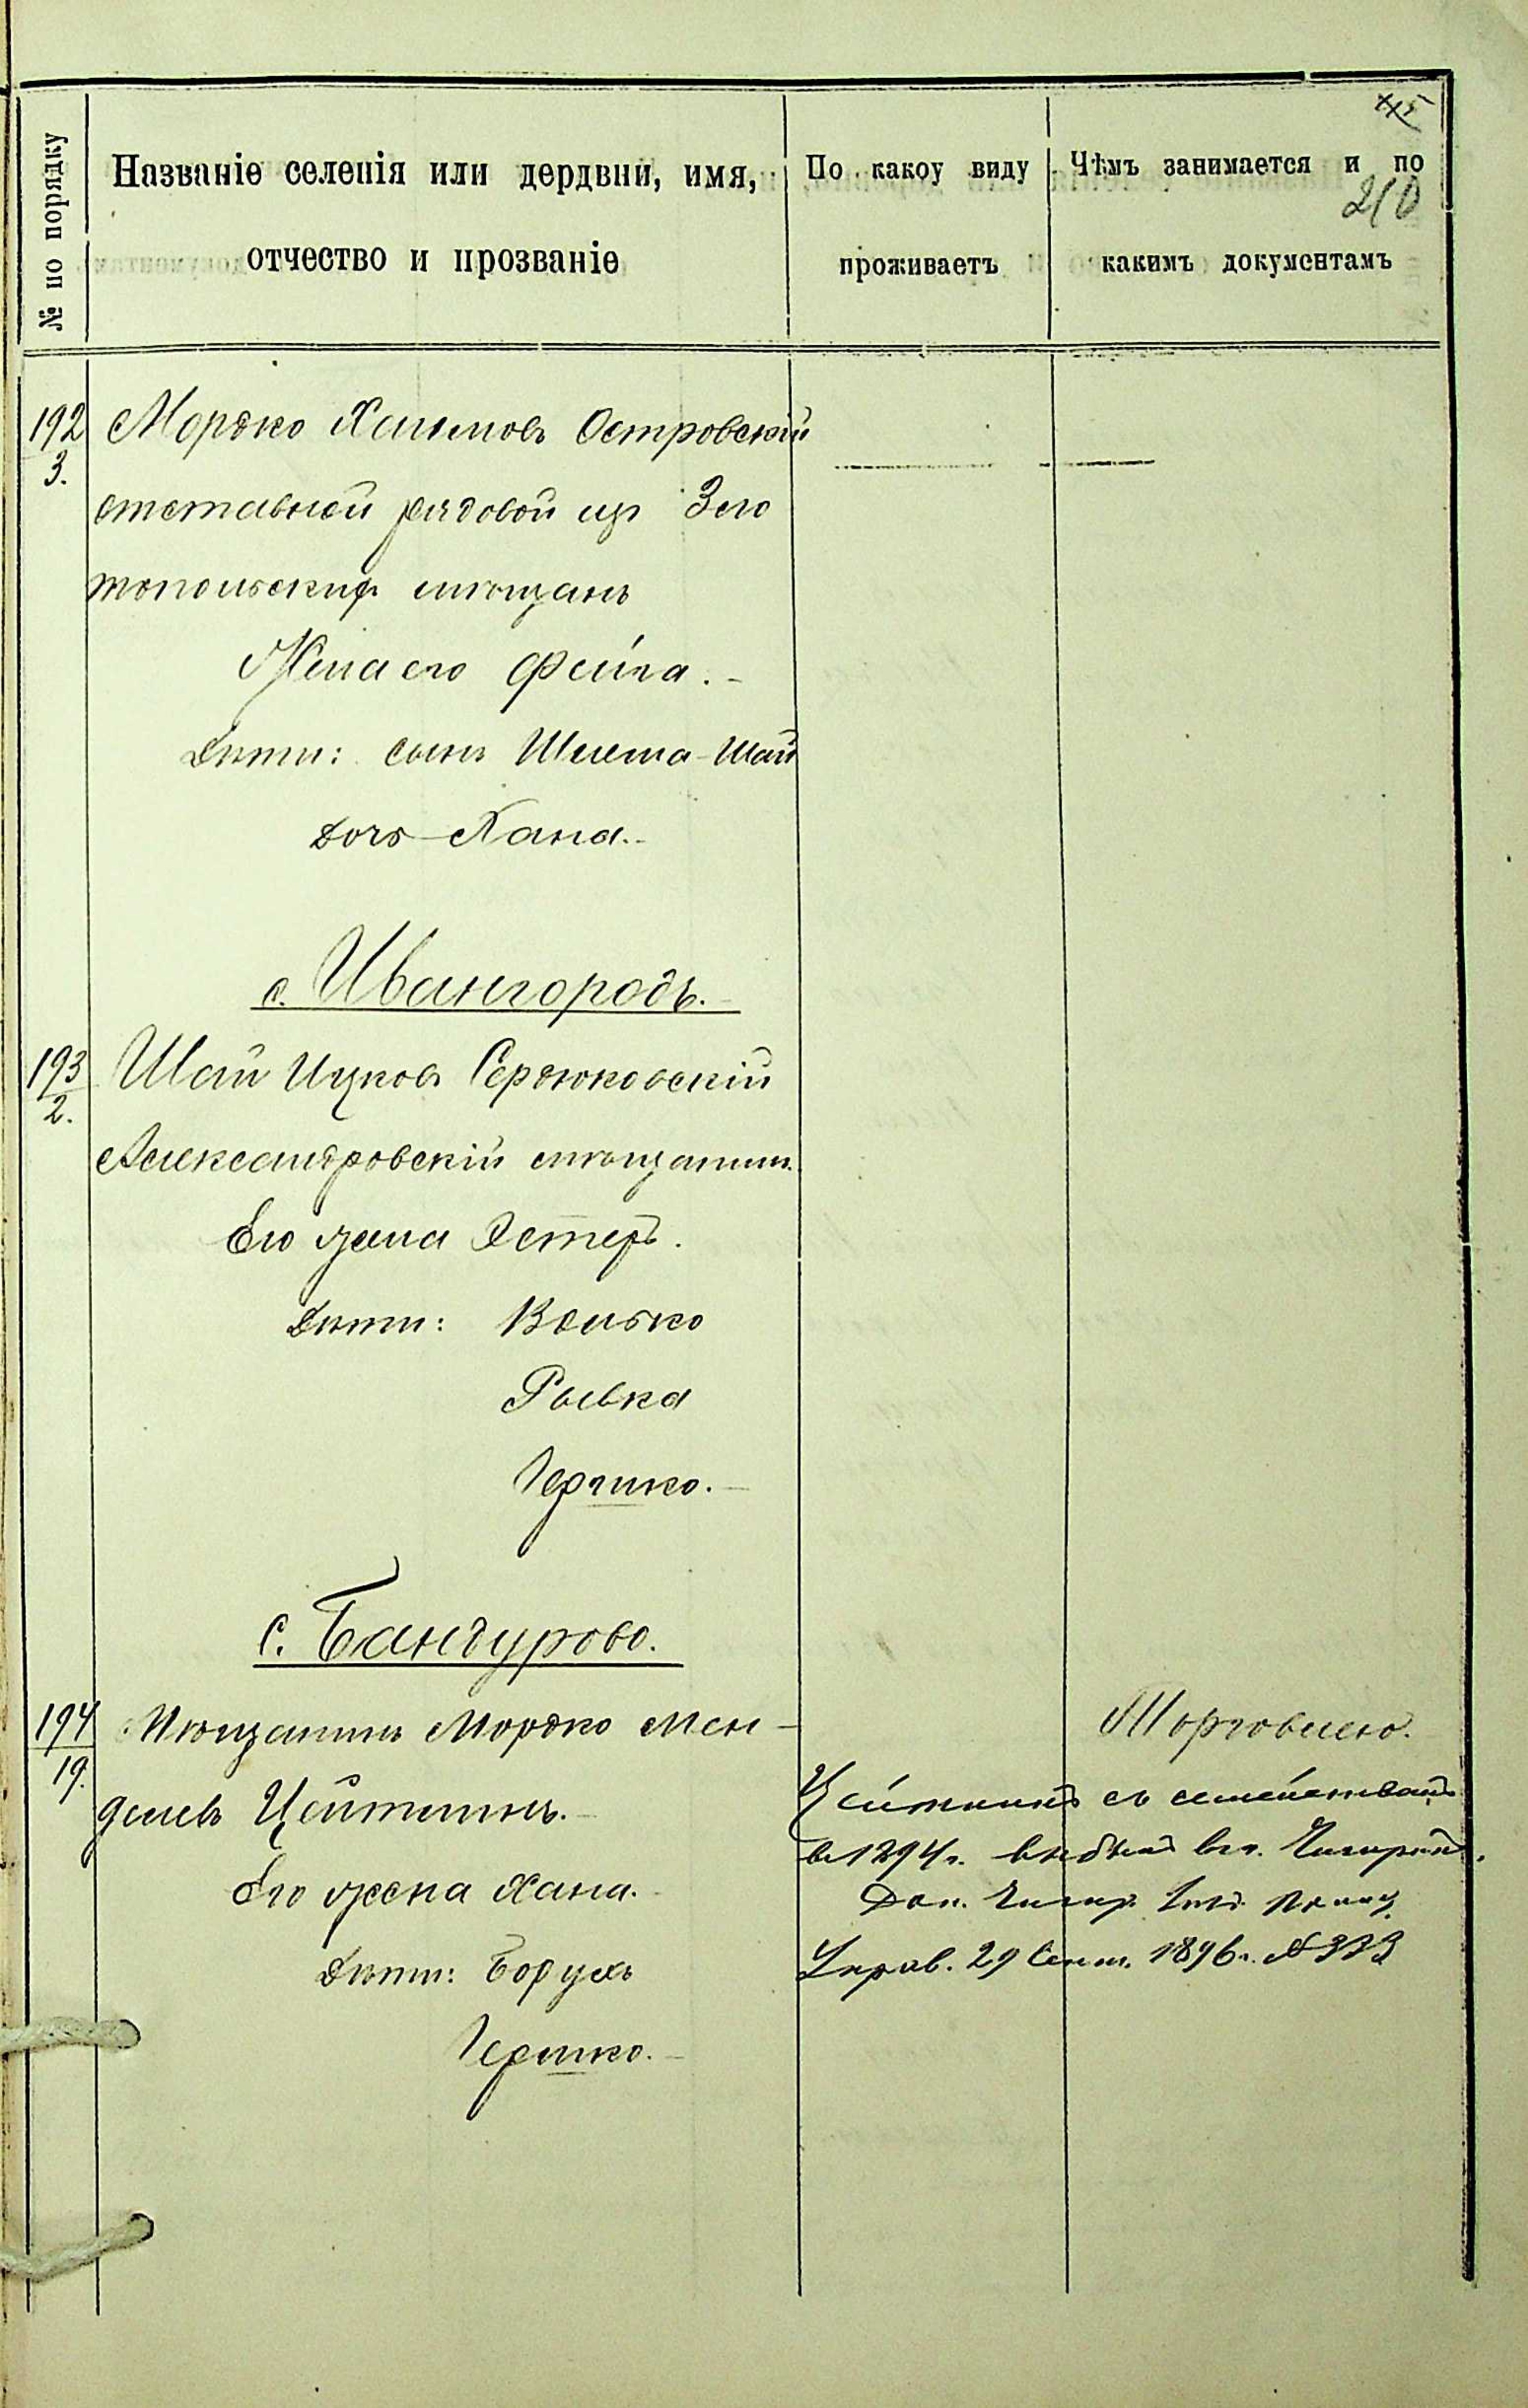 45
210
№ по порядку
Названіе селенія или дердвни, имя,
отчество и прозваніе
По какоу виду
проживаетъ
Чѣмъ занимается и по
какимъ документамъ
192
3.
Мордко Хаимовъ Островскій
отставной рядовой изъ Зло
топольскихъ мѣщанъ
Жена его Фейга.-
Дѣти: сынъ Шлема-Шай
Дочь-Хана.-
с. Ивангородъ.-
193
2.
Шай Ицковъ Сердюковскій
Александровскій мѣщанин.
Его жена Эстеръ.
Дѣти: Волько
Рывка
Гершко.-
с. Бандурово.
194
19.
Мѣщанинъ Мордко Мен-
делевъ Цейтлинъ.-
Его жена Хана.-
Дѣти: Борухъ
Гершко.-
Торговлею.
Цейтлинъ съ семействомъ
въ 1894 г. выбылъ въ г. Чигирин.
Дон. Чигир. Полиц.
Управ. 29 Сент. 1896 г. № 373